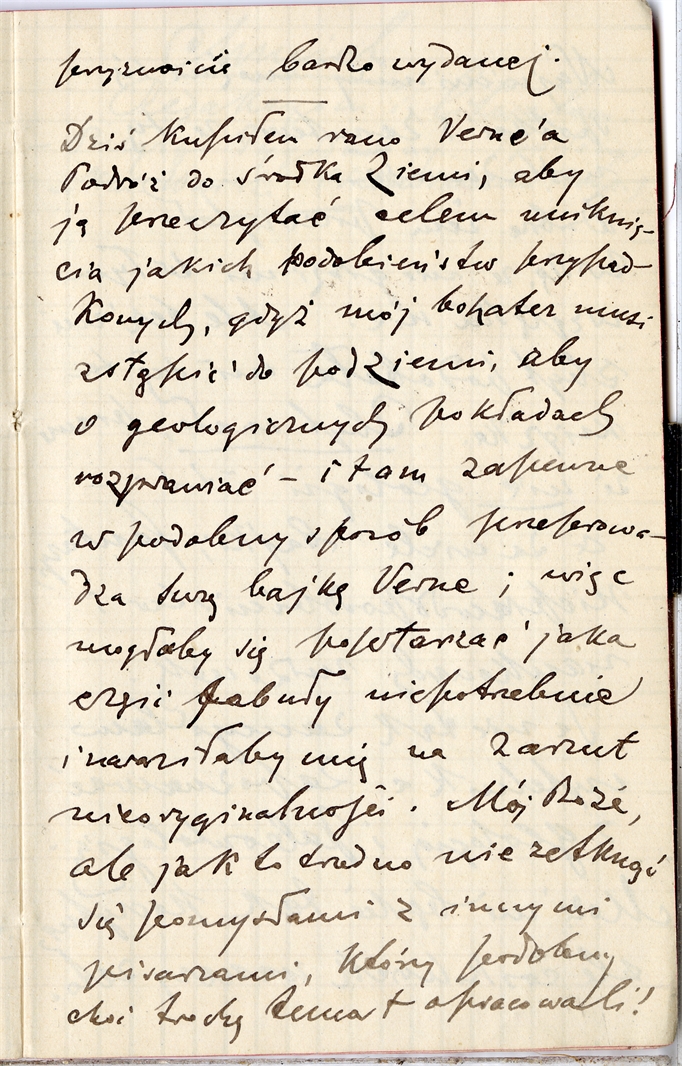 przyzwoicie bardzo wydanej.
Dziś kupiłem rano Verne'a
Podróż do środka Ziemi, aby
ją przeczytać celem uniknię-
cia jakich podobieństw przypad-
kowych, gdyż mój bohater musi
zstąpić do podziemi, aby
o geologicznych pokładach
rozprawiać – i tam zapewne
w podobny sposób przeprowa-
dza swą bajkę Verne i więc
mogłaby się powtarzać jaka
część fabuły niepotrzebnie
i naraziłaby mię na zarzut
nieoryginalności. Mój Boże,
ale jak to trudno nie zetknąć
się pomysłami z innymi
pisarzami, który podobny
choć trochę temat opracowali!